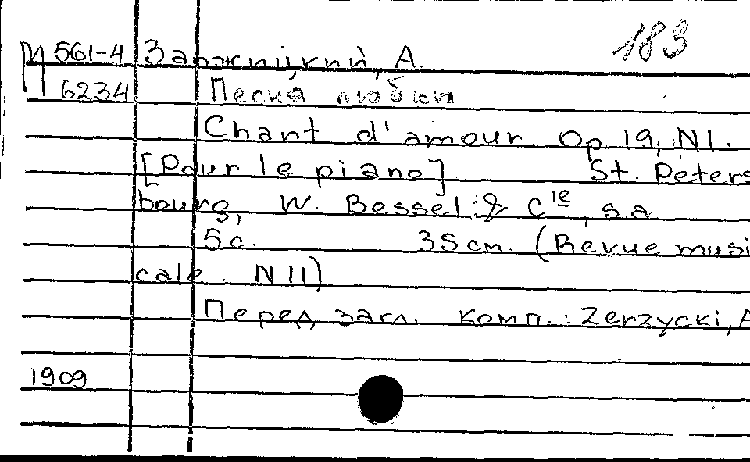 183
П 561-4 Заржицкий, А.
6234 Песня любви
Chant d'amour Op 19, N1.
[Pour le piano] St. Peters
bourg, W. Bessel & Cie, s.a
5c. 35 см. (Revue musi
cale N 11)
Перед загл. комп.: Zerzycki, A
1909